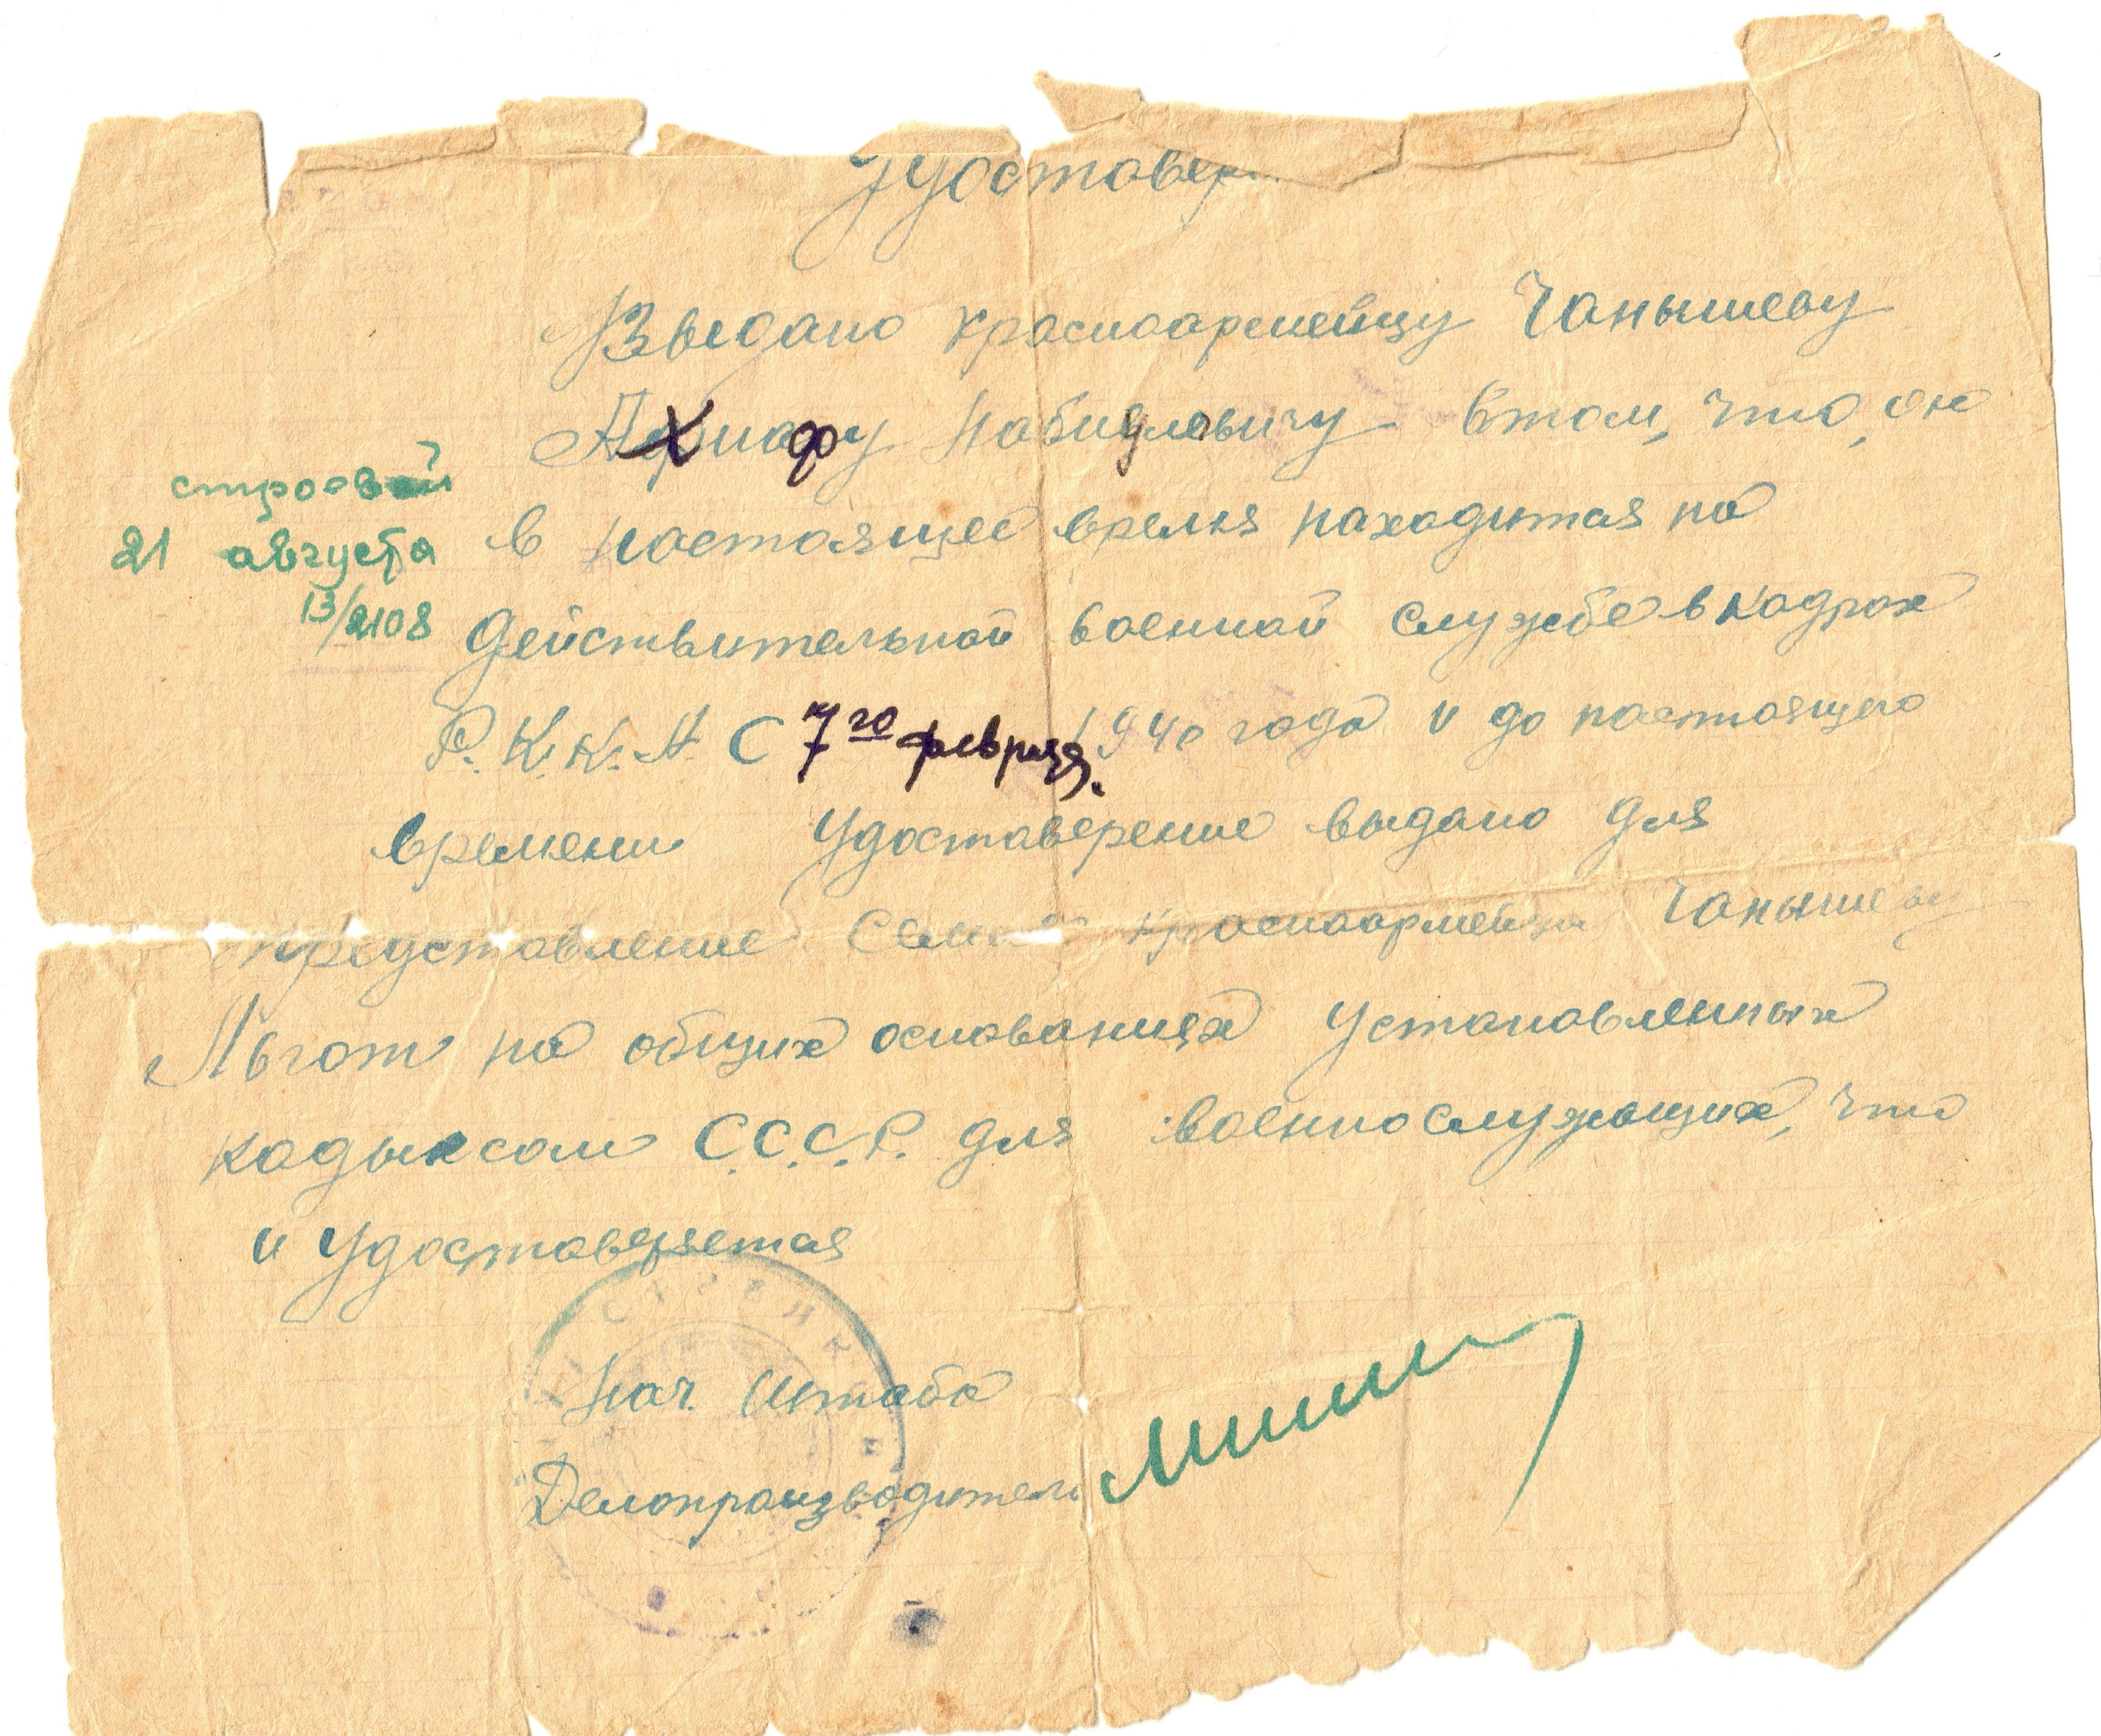 Удостовер
Выдано красноармейцу Чанышеву
Ахнафу Набиуловичу в том, что, он
строевой
21 августа
13/2108
в настоящее время находится на
действительной военной службе в кадрах
Р.К.К.А. С 7го февраля. 1940 года и до настоящего
времени Удостоверение выдано для
представление красноармейца Чанышеву
Льгот на общих основаниях установленных
кадыксам С.С.С.Р. для военнослужащих, что
и удостоверяется
Нач. Штаба
Делопроизводитель